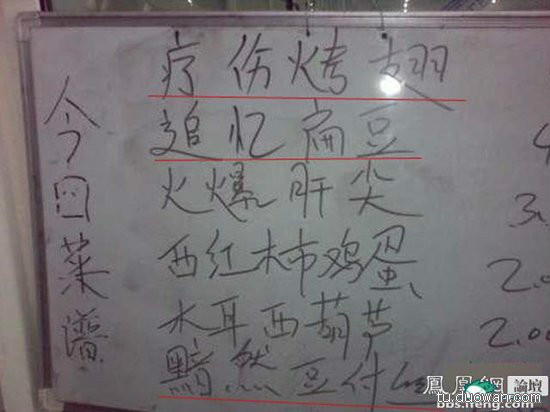 今日菜谱
疗伤烤翅
追忆扁豆 4
火爆肝尖 3.
西红柿鸡蛋 2.0
木耳西葫芦 2.00
黯然豆付
鳳凰網 論壇
tu.duowan.com
bbs.ifeng.com